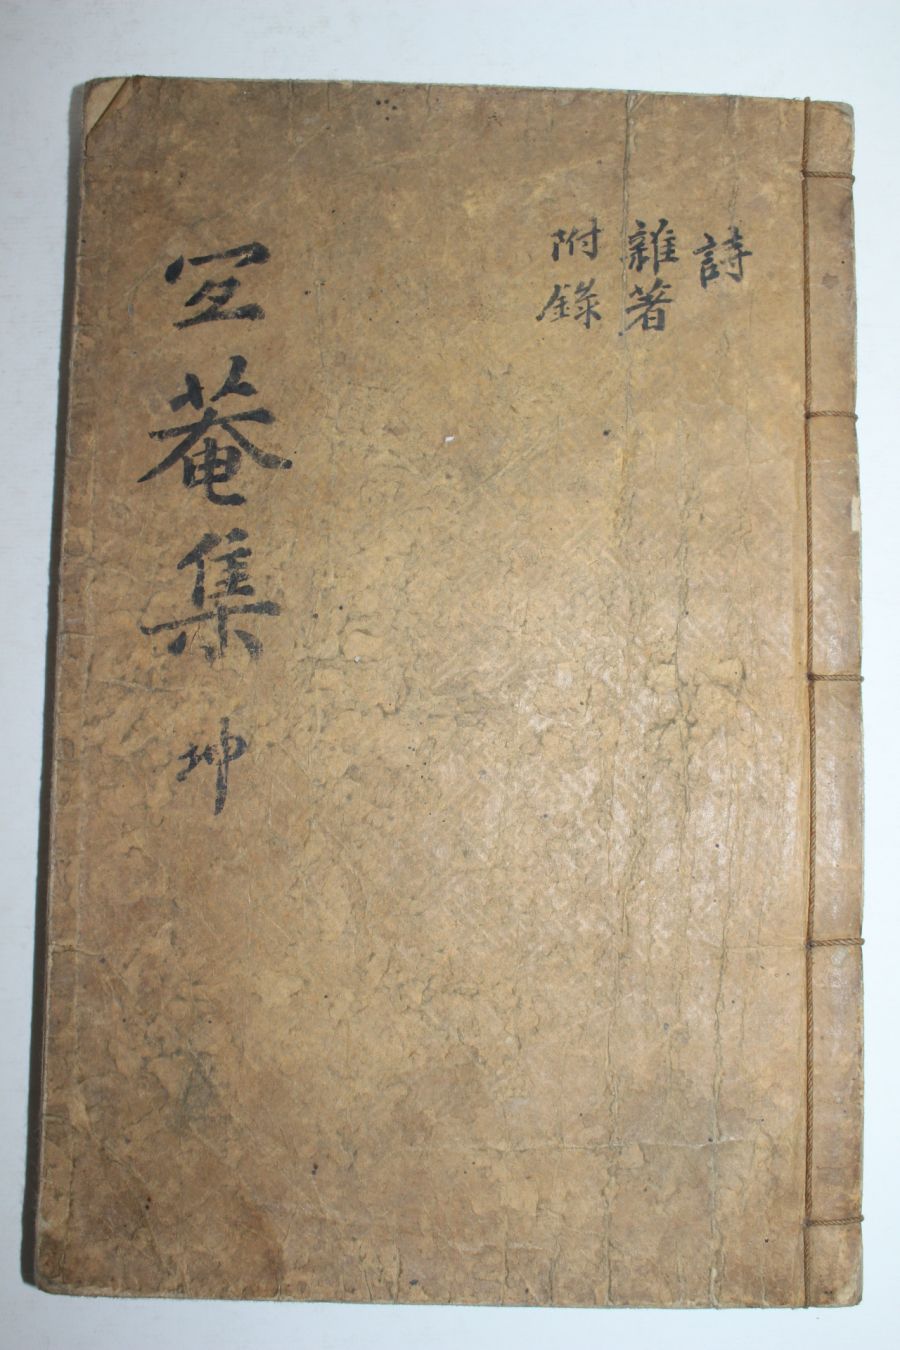 詩
雜著
附錄
冝菴集 坤